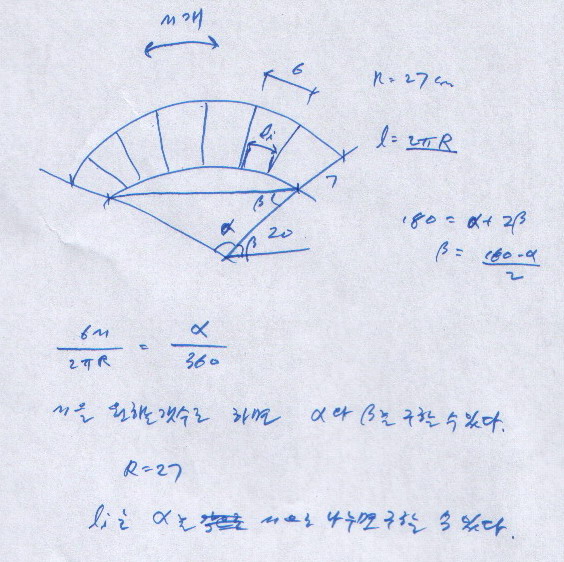 n개
6
R = 27 cm
li
l = 2πR
7
β
α
β
20
180 = α + 2β
β = 180-α / 2
6n / 2πR = α / 360
n을 원하는 갯수로 하면 α와 β를 구할 수 있다.
R = 27
li는 α를 n으로 나누면 구할 수 있다.